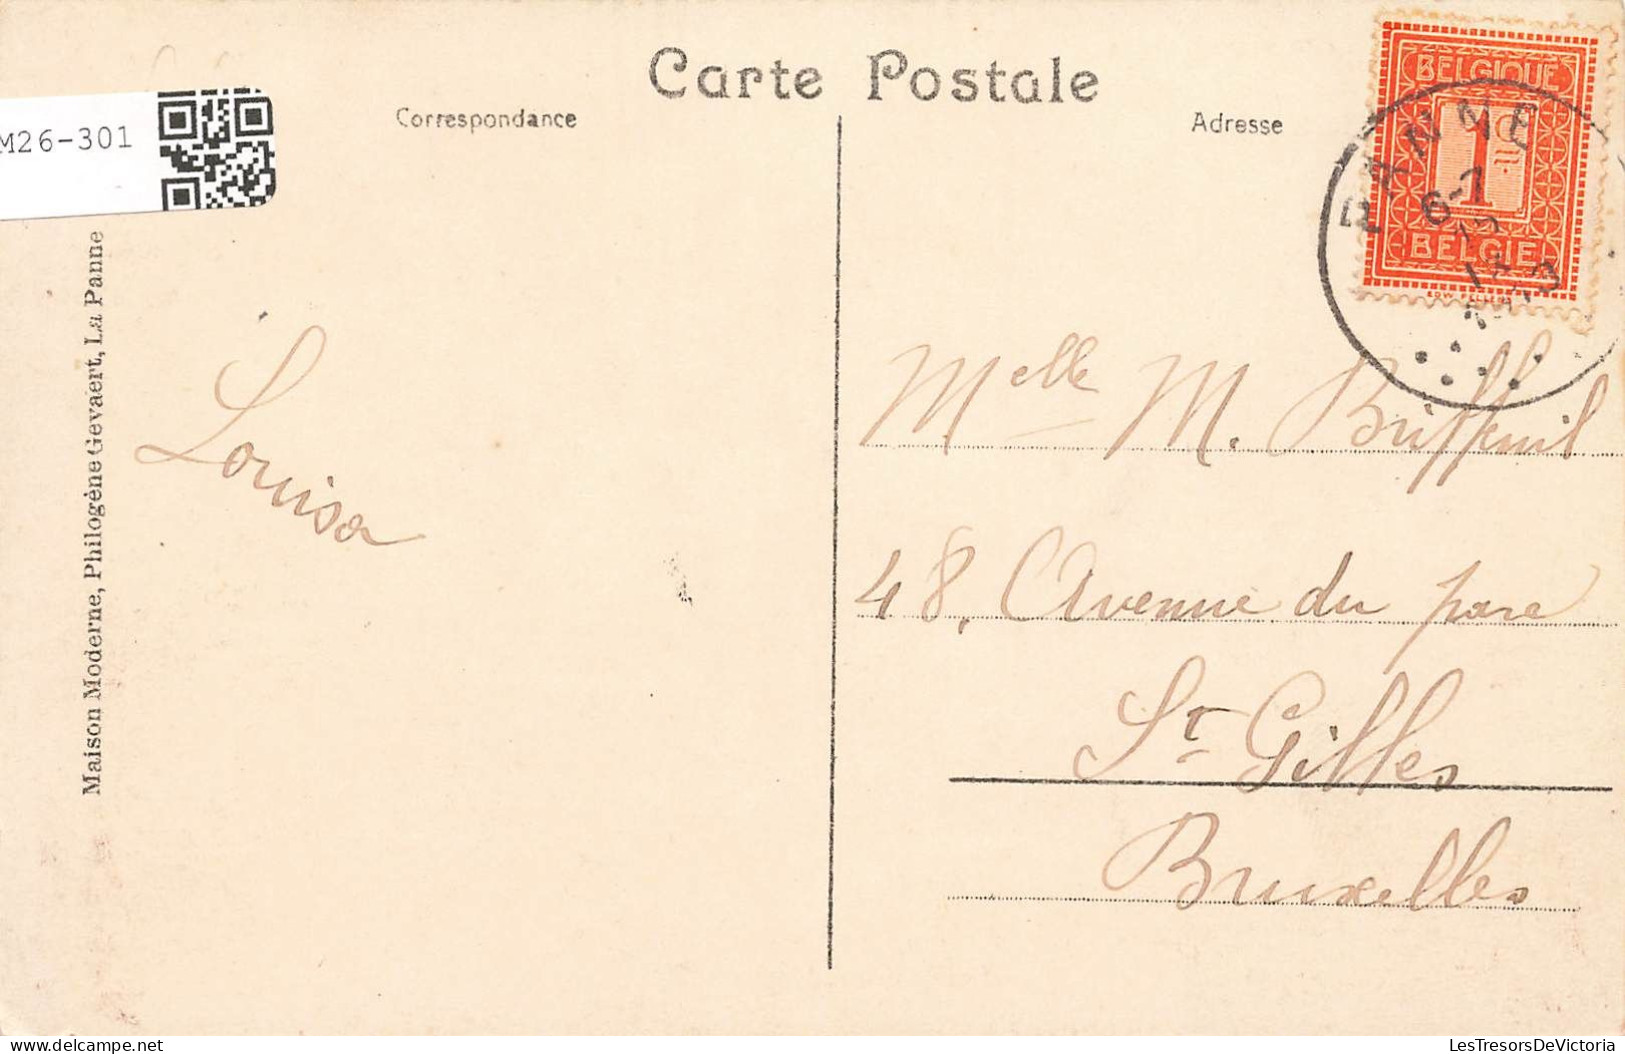 Carte Postale
Correspondance
Adresse
M26-301
BELGIQUE
1
BELGIË
PANNE
6-7
Maison Moderne, Philogène Gevaert, La Panne
Louisa
Melle M. Briffeuil
48, Avenue du parc
St Gilles
Bruxelles
delcampe.net
LesTresorsDeVictoria